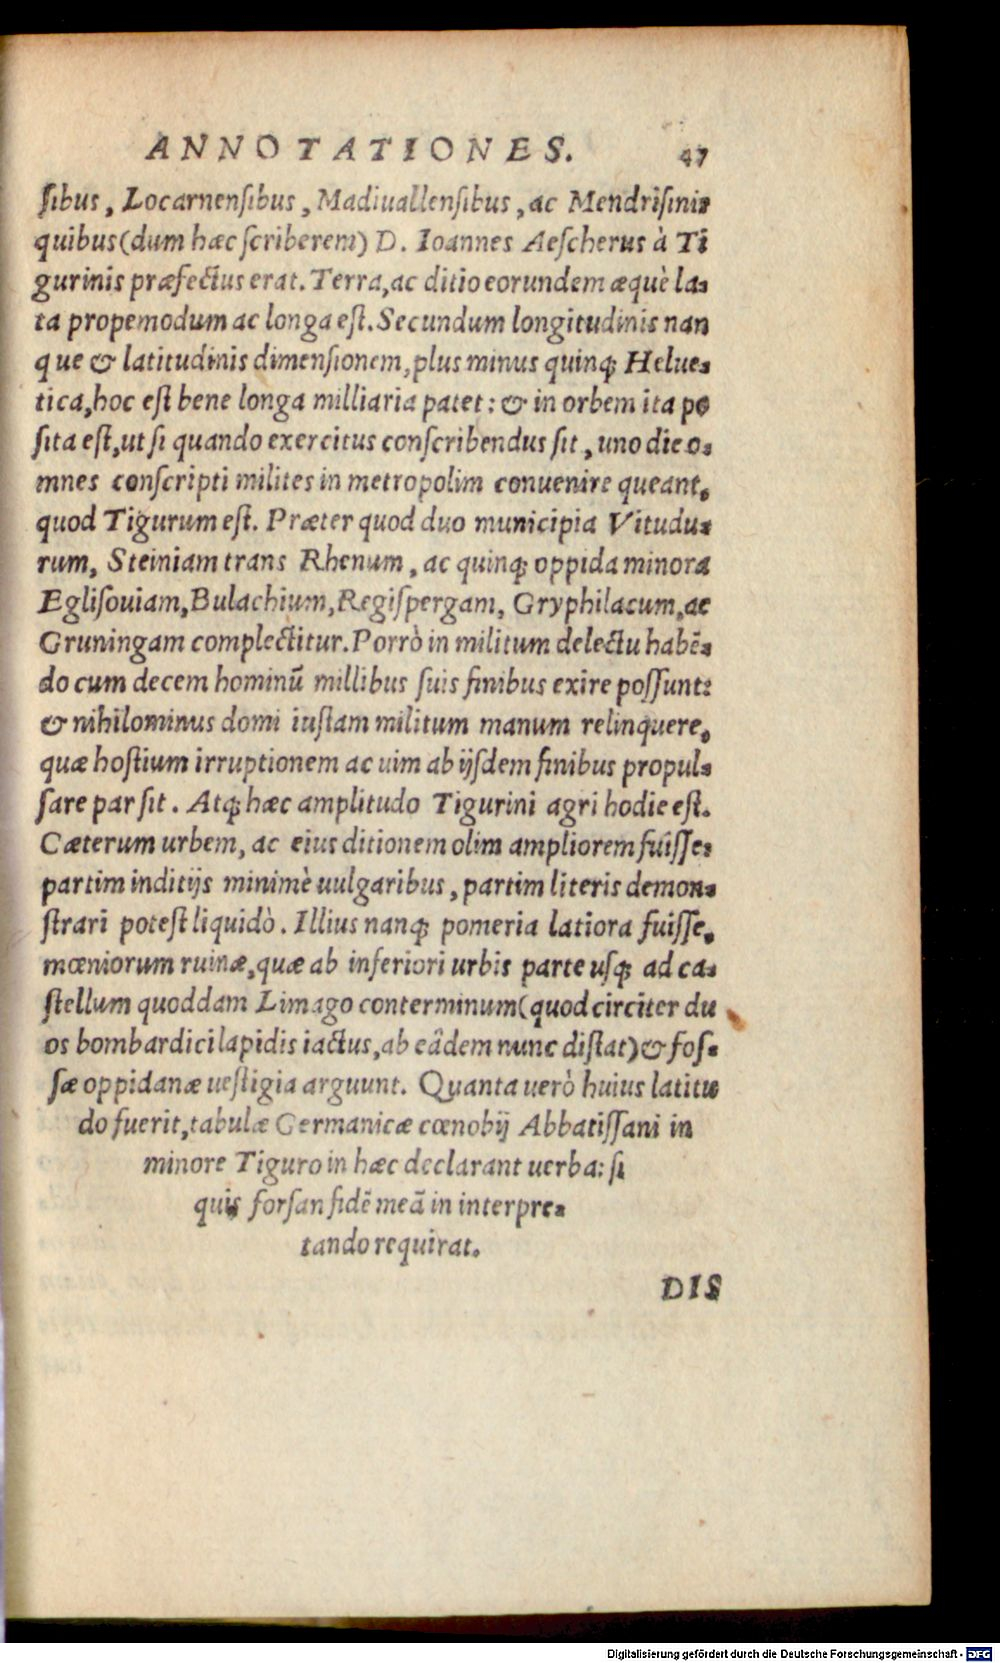 ANNOTATIONES. 47
ſibus, Locarnenſibus, Madiuallenſibus, ac Mendriſinis
quibus(dum hæc ſcriberem) D. Ioannes Aeſcherus à Ti
gurinis præfectus erat. Terra, ac ditio eorundem æquè la-
ta propemodum ac longa eſt. Secundum longitudinis nan
que & latitudinis dimenſionem, plus minus quinq; Helue-
tica, hoc eſt bene longa milliaria patet: & in orbem ita po
ſita eſt, ut ſi quando exercitus conſcribendus ſit, uno die o-
mnes conſcripti milites in metropolim conuenire queant,
quod Tigurum eſt. Præter quod duo municipia Vitudu-
rum, Steiniam trans Rhenum, ac quinq; oppida minora
Egliſouiam, Bulachium, Regiſpergam, Gryphilacum, ac
Gruningam complectitur. Porrò in militum delectu habē-
do cum decem hominū millibus ſuis finibus exire poſſunt:
& nihilominus domi iuſtam militum manum relinquere,
quæ hoſtium irruptionem ac uim ab ijſdem finibus propul-
ſare par ſit. Atq; hæc amplitudo Tigurini agri hodie eſt.
Cæterum urbem, ac eius ditionem olim ampliorem fuiſſe:
partim inditijs minimè uulgaribus, partim literis demon-
ſtrari poteſt liquidò. Illius nanq; pomeria latiora fuiſſe,
mœniorum ruinæ, quæ ab inferiori urbis parte uſq; ad ca-
ſtellum quoddam Limago conterminum(quod circiter du
os bombardici lapidis iactus, ab eâdem nunc diſtat) & foſ-
ſæ oppidanæ ueſtigia arguunt. Quanta uerò huius latitu
do fuerit, tabulæ Germanicæ cœnobij Abbatiſſani in
minore Tiguro in hæc declarant uerba: ſi
quis forſan fidē meā in interpre-
tando requirat.
DIS
Digitalisierung gefördert durch die Deutsche Forschungsgemeinschaft - DFG